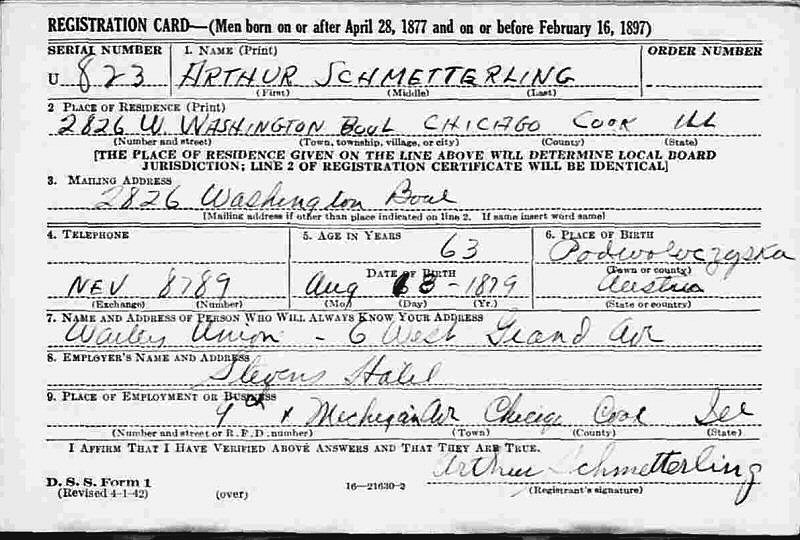 REGISTRATION CARD—(Men born on or after April 28, 1877 and on or before February 16, 1897)
SERIAL NUMBER 1. NAME (Print) ORDER NUMBER
U 823 ARTHUR SCHMETTERLING
(First) (Middle) (Last)
2 PLACE OF RESIDENCE (Print)
2826 W. WASHINGTON BOUL CHICAGO COOK ILL
(Number and street) (Town, township, village, or city) (County) (State)
[THE PLACE OF RESIDENCE GIVEN ON THE LINE ABOVE WILL DETERMINE LOCAL BOARD
JURISDICTION; LINE 2 OF REGISTRATION CERTIFICATE WILL BE IDENTICAL]
3. MAILING ADDRESS
2826 Washington Boul
[Mailing address if other than place indicated on line 2. If same insert word same]
4. TELEPHONE 5. AGE IN YEARS 6. PLACE OF BIRTH
63 Podwoloczyska
DATE OF BIRTH (Town or county)
NEV 8789 Aug 3-1879 Austria
(Exchange) (Number) (Mo.) (Day) (Yr.) (State or country)
7. NAME AND ADDRESS OF PERSON WHO WILL ALWAYS KNOW YOUR ADDRESS
Union - 6 West Grand Av
8. EMPLOYER'S NAME AND ADDRESS
Stevens Hotel
9. PLACE OF EMPLOYMENT OR BUSINESS
Michigan Av Chicago Cook Ill
(Number and street or R. F. D. number) (Town) (County) (State)
I AFFIRM THAT I HAVE VERIFIED ABOVE ANSWERS AND THAT THEY ARE TRUE.
Arthur Schmetterling
D. S. S. Form 1
(Revised 4-1-42) (over) 16—21630-2 (Registrant's signature)